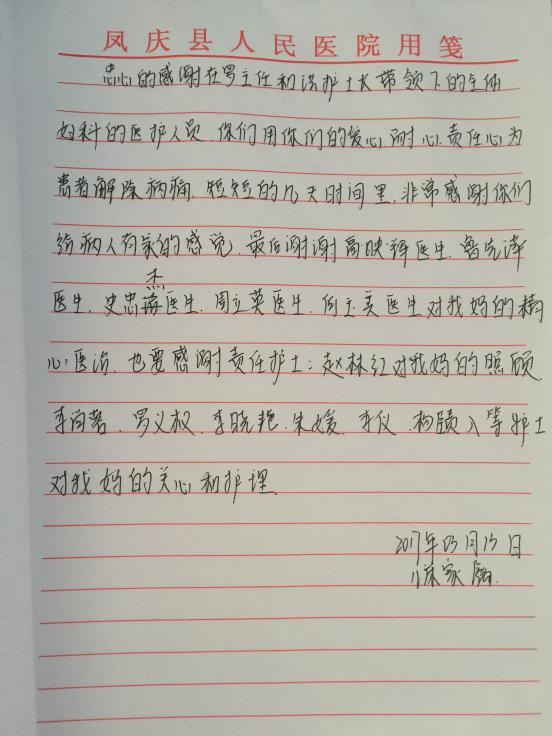 凤庆县人民医院用笺
忠心的感谢在罗主任和洪护士长带领下的全体
妇科的医护人员.你们用你们的爱心耐心.责任心为
患者解除病痛.短短的几天时间里.非常感谢你们
给病人有家的感觉.最后谢谢高映辉医生.鲁宪泽
杰
医生.史忠医生.周立英医生.何玉美医生对我妈的精
心医治.也要感谢责任护士:赵林红对我妈的照顾
李润蓉.罗义权.李晓艳.朱媛.李仪.杨等护士
对我妈的关心和护理.
2017年03月13日
家属.